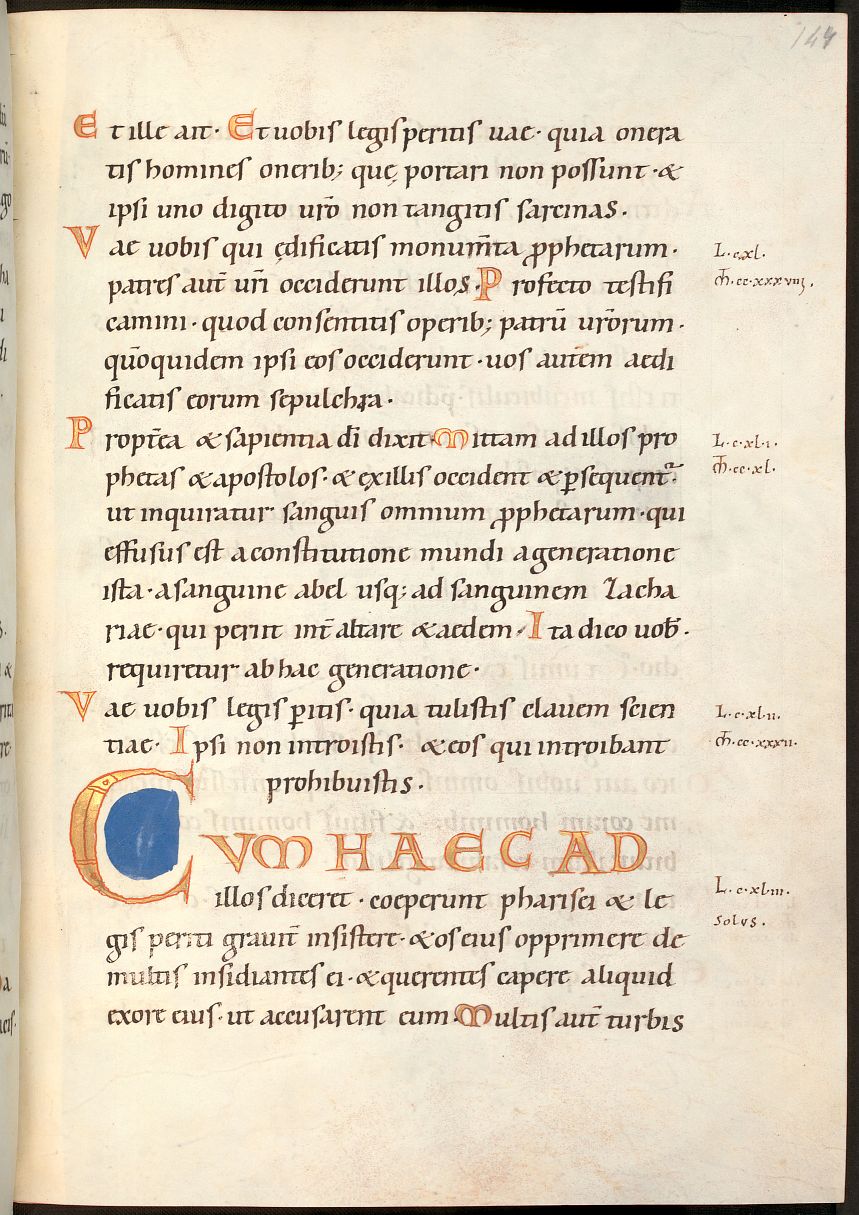 147
Et ille ait· Et uobis legisperitis uae· quia onera
tis homines onerib; quę portari non possunt·&
ipsi uno digito ur̄o non tangitis sarcinas·
Vae uobis qui ędificatis monum̄ta ꝓphetarum·
L·c·xl·
patres aut̄ ur̄i occiderunt illos· Profecto testifi
camini· quod consentitis operib; patrū ur̄orum·
quōquidem ipsi eos occiderunt· uos autem aedi
ficatis eorum sepulchra·
Propt̄ea & sapientia dī dixit· Mittam ad illos pro
L·c·xl·i·
phetas & apostolos· & exillis occident & ꝑsequent᷑·
M̄·cc·xl·
ut inquiratur sanguis omnium ꝓphetarum· qui
effusus est aconstitutione mundi ageneratione
ista· asanguine abel usq; ad sanguinem Zacha
riae· qui periit int̄ altare & aedem· Ita dico uob̄·
requiretur ab hac generatione·
Vae uobis legis ꝑitis· quia tulistis clauem scien
L·c·xl·ii·
tiae· Ipsi non introistis· & eos qui introibant
M̄·cc·xxxii·
prohibuistis·
CVM HAEC AD
illos diceret· coeperunt pharisei & le
L·c·xl·iii·
gis periti grauit̄ insistere· & os eius opprimere de
solus·
multis insidiantes ei· & querentes capere aliquid
exore eius· ut accusarent eum· Multis aut̄ turbis